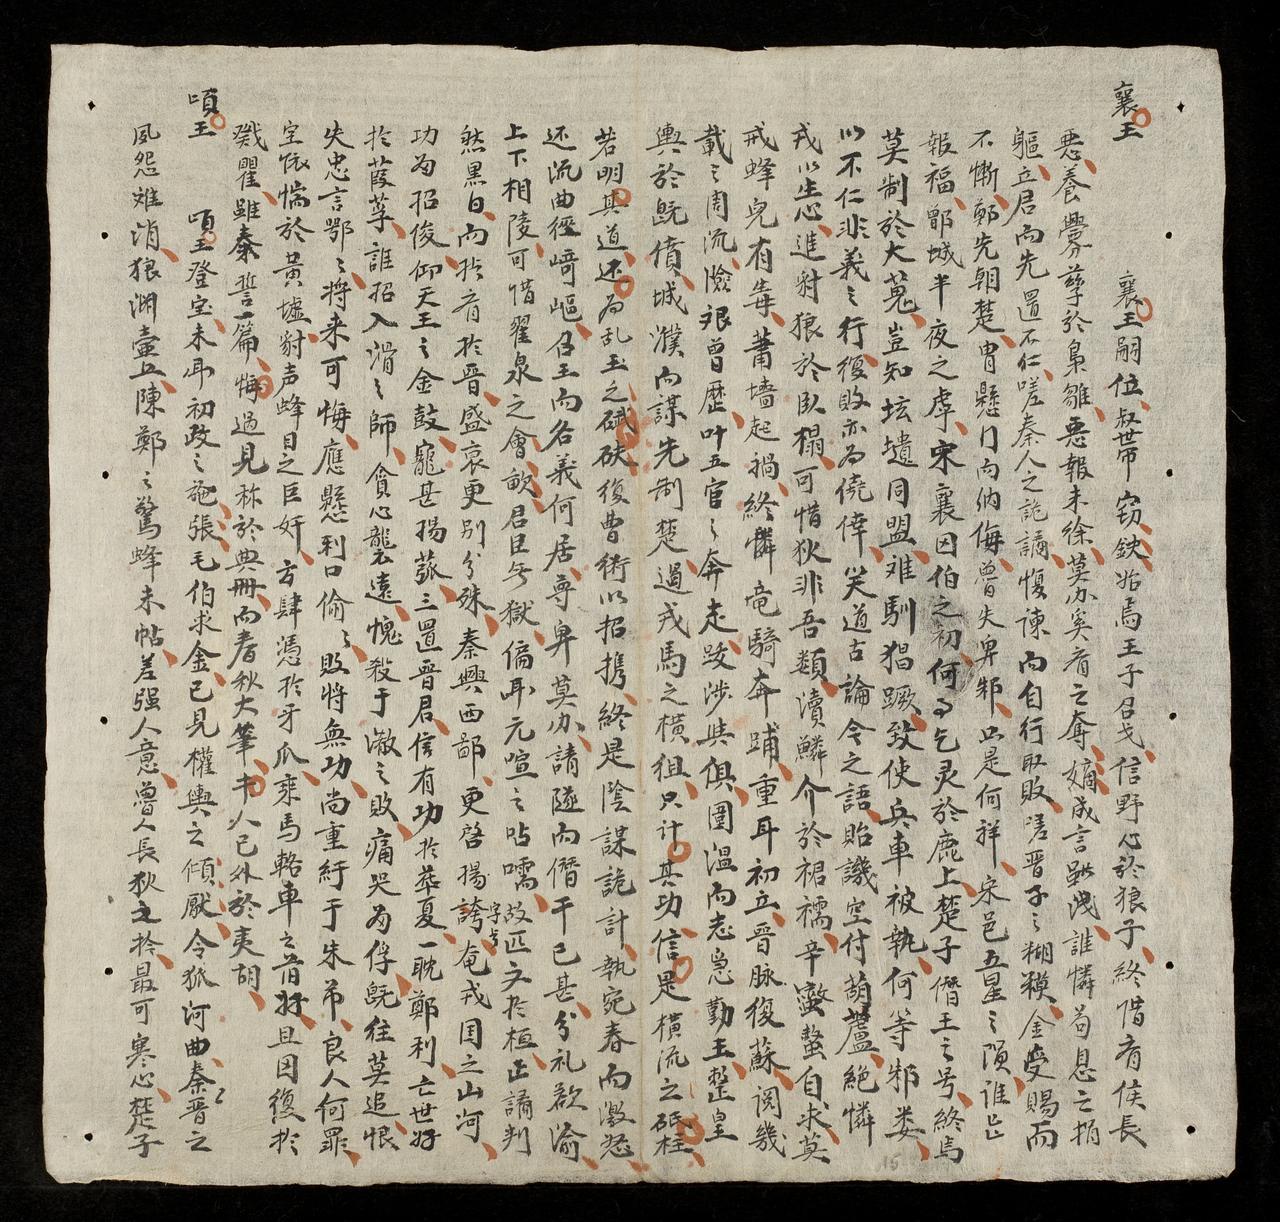 襄王
襄王嗣位叔帶窃鈇始焉王子召戎信野心於狼子終惜有侯長
惡養釁孽於梟雛惡報未徐莫亦奚有之奔嫡成言雖洩誰憐荀息之捐
軀立君而先置不仁嗟秦人之詭譎愎諫而自行取敗嗟晋子之糊模金受賜而
不慚鄭先朝楚冑懸门而纳侮魯失卑邾只是何祥宋邑五星之隕誰亡
報福鄫城半夜之虐宋襄因伯之初何乃乞灵於鹿上楚子僭王之号終焉
莫制於大蒐豈知坛墠同盟难馴猖蹶致使兵車被執何等邾娄
以不仁非義之行復敗亦为僥倖笑道古論今之語貽譏空付葫蘆絶憐
戎以生心進豺狼於臥榻可惜狄非吾類瀆鱗介於裙襦辛螫自求莫
戒蜂兒有毒蕭墻起禍終憐竜騎奔踊重耳初立晋脉復蘇閲幾
載之周流險艰曾歷叶五官之奔走跋涉與俱圍温而志急勤王整皇
輿於既僨城濮而謀先制楚過戎馬之橫狙只計其功信是橫流之砥柱
若明其道还为乱玉之碔砆復曹衛以招携終是陰謀詭計執宛春而激怒
还流曲徑﨑嶇召王而名義何居尊卑莫办請隧而僭干已甚分礼欲渝
上下相陵可惜翟泉之會㱃君臣无獄偏耳元喧之呫嚅故匹文於桓正譎判
然黑白而於有於晋盛衰更别分殊秦興西鄙更啓揚誇奄戎国之山河
功为招俊仰天王之金鼓寵甚揚菰三置晋君信有功於恭夏一眈鄭利亡世好
於葭莩誰招入滑之師貪心蠶遠愧殺于澈之敗痛哭为俘既往莫追恨
失忠言鄂之将来可悔應懸利口偷之敗将無功尚重紆于朱芾良人何罪
空怅惴於黃墟豺声蜂目之巨奸方肆憑於牙爪乘馬輅車之首好且因復於
戣瞿雖秦誓一篇悔過見称於典冊而春秋大筆书人已外於夷胡
頃王
頃王登宝未耳初政之施張毛伯求金已見權輿之傾厭令狐河曲秦晋之
夙怨难消狼渊壺丘陳鄭之驚蜂未帖差强人意魯人長狄之於最可寒心楚子